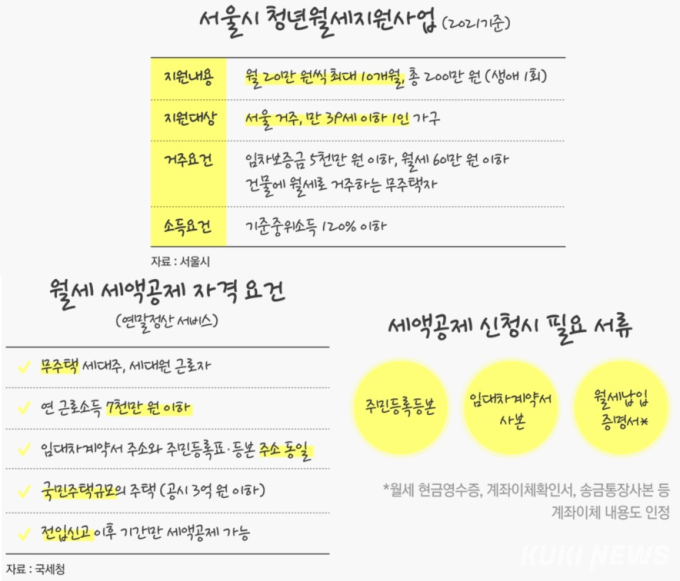 서울시 청년월세지원사업 (2021기준)
지원내용 월 20만 원씩 최대 10개월, 총 200만 원 (생애 1회)
지원대상 서울 거주, 만 39세 이하 1인 가구
거주요건 임차보증금 5천만 원 이하, 월세 60만 원 이하
건물에 월세로 거주하는 무주택자
소득요건 기준중위소득 120% 이하
자료 : 서울시
월세 세액공제 자격 요건
(연말정산 서비스)
무주택 세대주, 세대원 근로자
연 근로소득 7천만 원 이하
임대차계약서 주소와 주민등록표·등본 주소 동일
국민주택규모의 주택 (공시 3억 원 이하)
전입신고 이후 기간만 세액공제 가능
자료 : 국세청
세액공제 신청시 필요 서류
주민등록등본
임대차계약서
사본
월세납입
증명서*
*월세 현금영수증, 계좌이체확인서, 송금통장사본 등
계좌이체 내용도 인정
KUKI NEWS